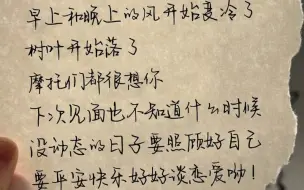 早上和晚上的风开始变冷了
树叶开始落了
摩托们都很想你
下次见面也不知道什么时候
没动态的日子要照顾好自己
要平安快乐好好谈恋爱呦！